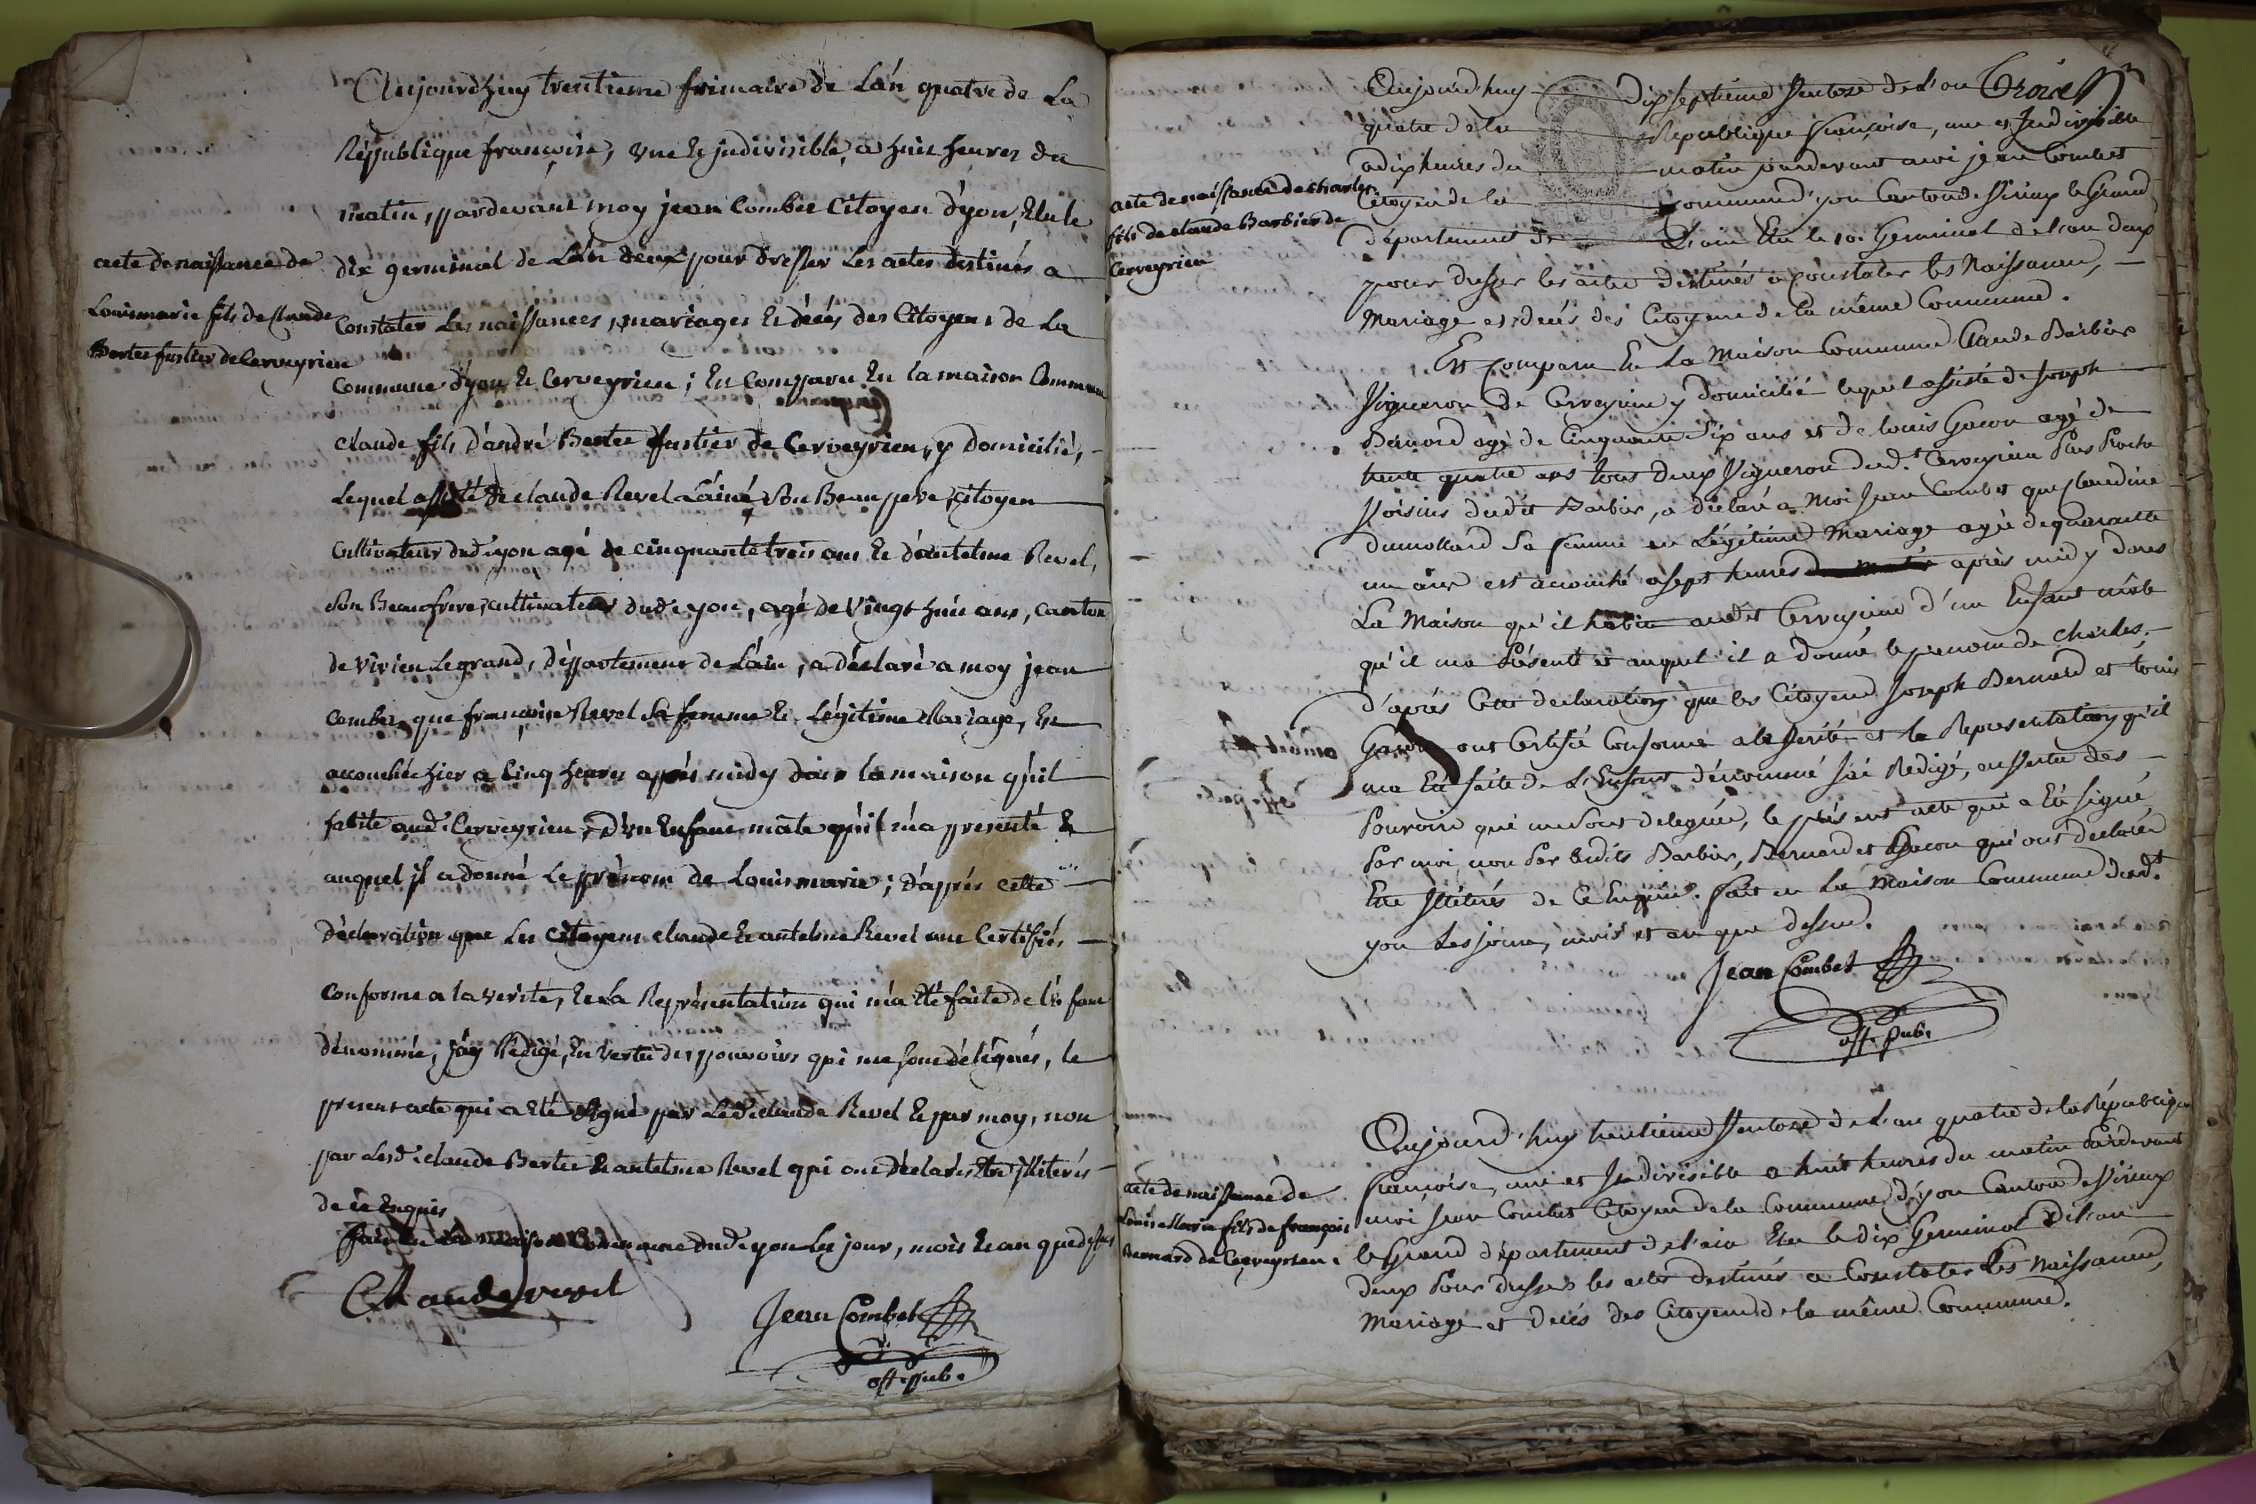 Aujourdhuy trentieme frimaire de Lán quatre de La
République françoise, vne & jndivisible, a huit heures du
matin, pardevant moy jean Combet Citoyen d'yon, Elu le
dix germinal de Lán deux pour dresser Les actes destinés a
Constater Les naissances, mariages & décés des Citoyens de La
Commune d'yon & Cerveyrieu; Est Comparu En la maison Commune
claude fils d'andré Bertet fustier de Cerveyrieu, y Domicilié,
Lequel assisté de claude Revel Láiné, Son Beau pere, citoyen
Cultivateur dud. yon agé de cinquante trois ans & d'antelme Revel,
Son Beaufrere, cultivateur dud. yon, agé de Vingt huit ans, canton
de virieu Legrand, département de L'ain, a déclaré a moy jean
Combet que françoise Revel Sa femme En Légitime Mariage, Est
accouchée hier a Cinq heures aprés midy dans la maison qu'il
habite aud. Cerveyrieu, d'vn Enfant mâle qu'il m'a presenté &
auquel jl a donné Le prénom de Louis marie; d'aprés cette
déclaration que Les Citoyens claude & antelme Revel ont Certifiés
Conforme a la verité, & La Représentation qui m'a été faite de L'Enfant
dénommé, j'ay Rédigé, En vertu des pouvoirs qui me sont délégués, le
present acte qui a été signé par Led. claude Revel & par moy, non
par Lesd. claude Bertet & antelme Revel qui ont déclarés Etre jlliterés
de ce Enquis
fait En La maison Commune dud. yon Les jour, mois & an que dessus
Claude revel
Jean Combet
off. pub.
acte de naissance de
Louis marie fils de Claude
Bertet fustier de Cerveyrieu
acte de naissance de charles
fils de claude Barbier de
Cerveyrieu
Aujourd'huy dix septieme Ventose de l'an Trois
quatre de la République françoise, une et Indivisible
a dix heures du matin pardevant moi jean Combet
Citoyen de la Commune d'yon Canton de Virieux le Grand
département de L'ain Elu le 10. Germinal de l'an deux
pour dresser les actes destinés a Constater les Naissances,
Mariage et décés des Citoyens de la même Commune.
Est Comparu En La Maison Commune Claude Barbier
Vigneron de Cerveyrieu y domicilié lequel assisté de Joseph
Bernard agé de Cinquante Six ans et de louis Gacon agé de
trente quatre ans tous deux Vigneron dud.t Cerveyrieu Plus Proche
Voisins dudit Barbier, a déclaré a Moi Jean Combet que Claudine
dumollard Sa femme en Légitime Mariage agée de quarante
un ans est accouché a Sept heures après midy dans
La Maison qu'il habite audit Cerveyrieu d'un Enfant mâle
qu'il ma Présenté et auquel il a donné le prenom de Charles,
d'aprés Cette declaration que les Citoyens Joseph Bernard et louis
Gacon ont Certifié Conforme a la Verité et la Representation qu'il
ma Eté faite de L'Enfant dénommé J'ai Redigé, en Vertu des
Pouvoirs qui me sont delegués, le présent acte qui a Eté signé
Par moi non Par lesdits Barbier, Bernard et Gacon qui ont declarés
Etre Illitérés de Ce Enquis. fait en La Maison Commune dud.t
yon Les jours, mois et an que dessus.
Jean Combet
off. pub.
acte de naissance de
Louis Marie fils de françois
Bernard de Cerveyrieu.
Aujourd'huy trentieme Ventose de L'an quatre de la République
françoise, une et Indivisible a huit heures du matin Pardevant
moi Jean Combet Citoyen de la Commune d'yon Canton de Virieux
le Grand département de l'ain Elu le dix Germinal de l'an
deux Pour dresser les actes destinés a Constater les Naissances,
Mariage et décés des Citoyens de la même Commune.